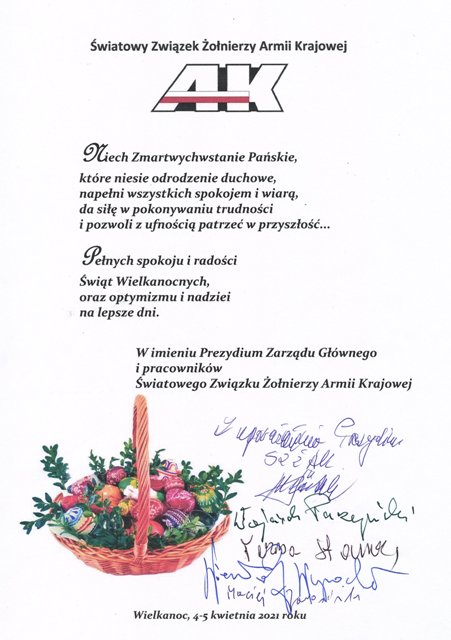 Światowy Związek Żołnierzy Armii Krajowej
AK
Niech Zmartwychwstanie Pańskie,
które niesie odrodzenie duchowe,
napełni wszystkich spokojem i wiarą,
da siłę w pokonywaniu trudności
i pozwoli z ufnością patrzeć w przyszłość...
Pełnych spokoju i radości
Świąt Wielkanocnych,
oraz optymizmu i nadziei
na lepsze dni.
W imieniu Prezydium Zarządu Głównego
i pracowników
Światowego Związku Żołnierzy Armii Krajowej
Z upoważnienia Prezydium
ŚZŻAK
Maciej
Wielkanoc, 4-5 kwietnia 2021 roku